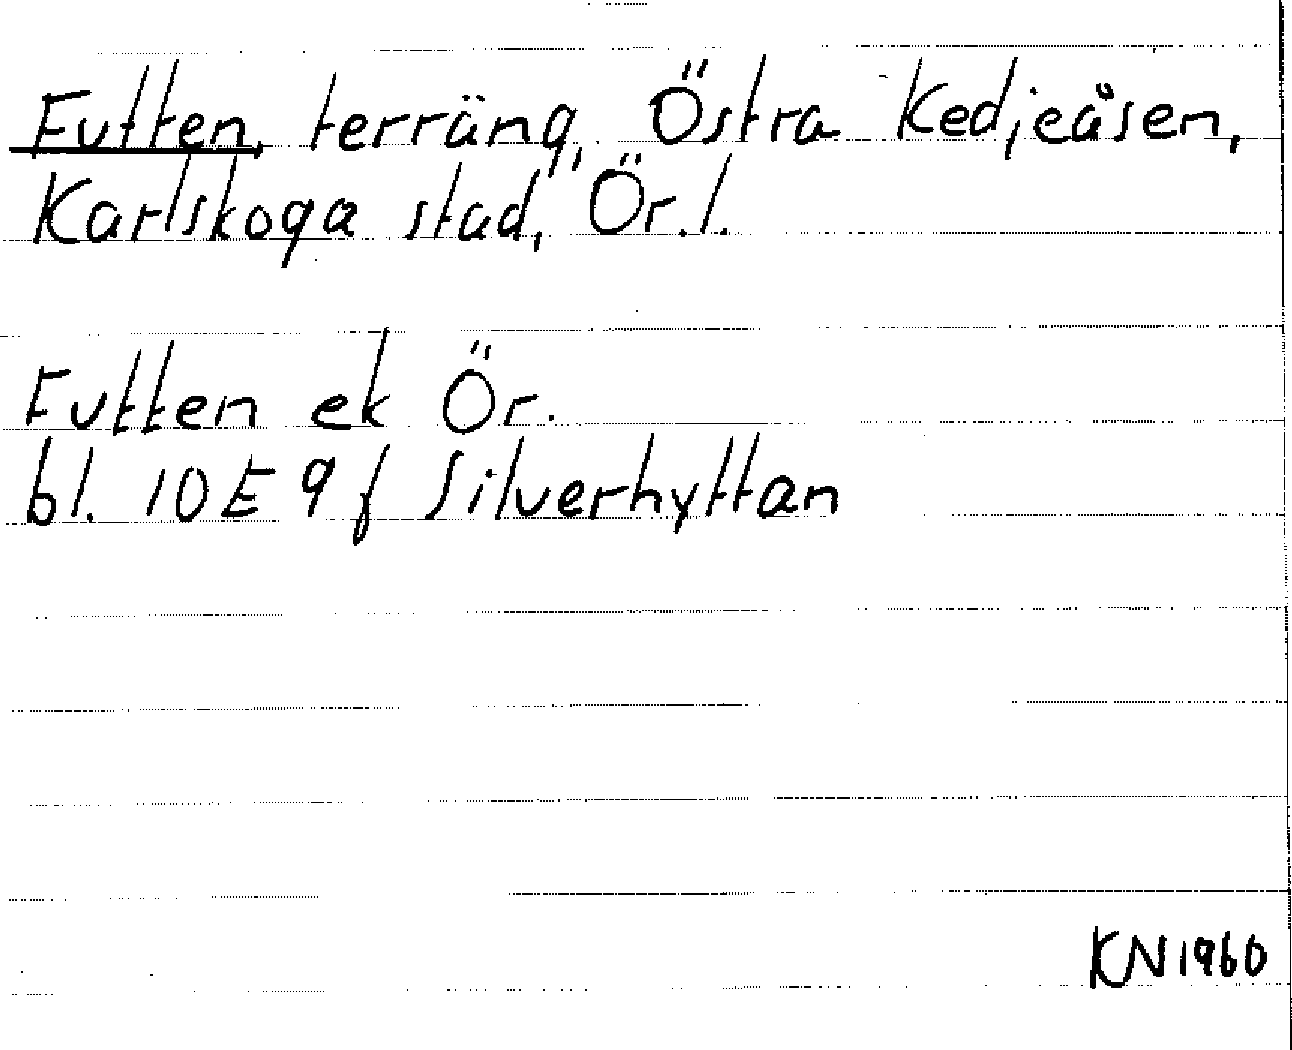 Futten, terräng, Östra Kedjeåsen,
Karlskoga stad, Ör. l.
Futten ek Ör.
bl. 10E 9f Silverhyttan
KN1960